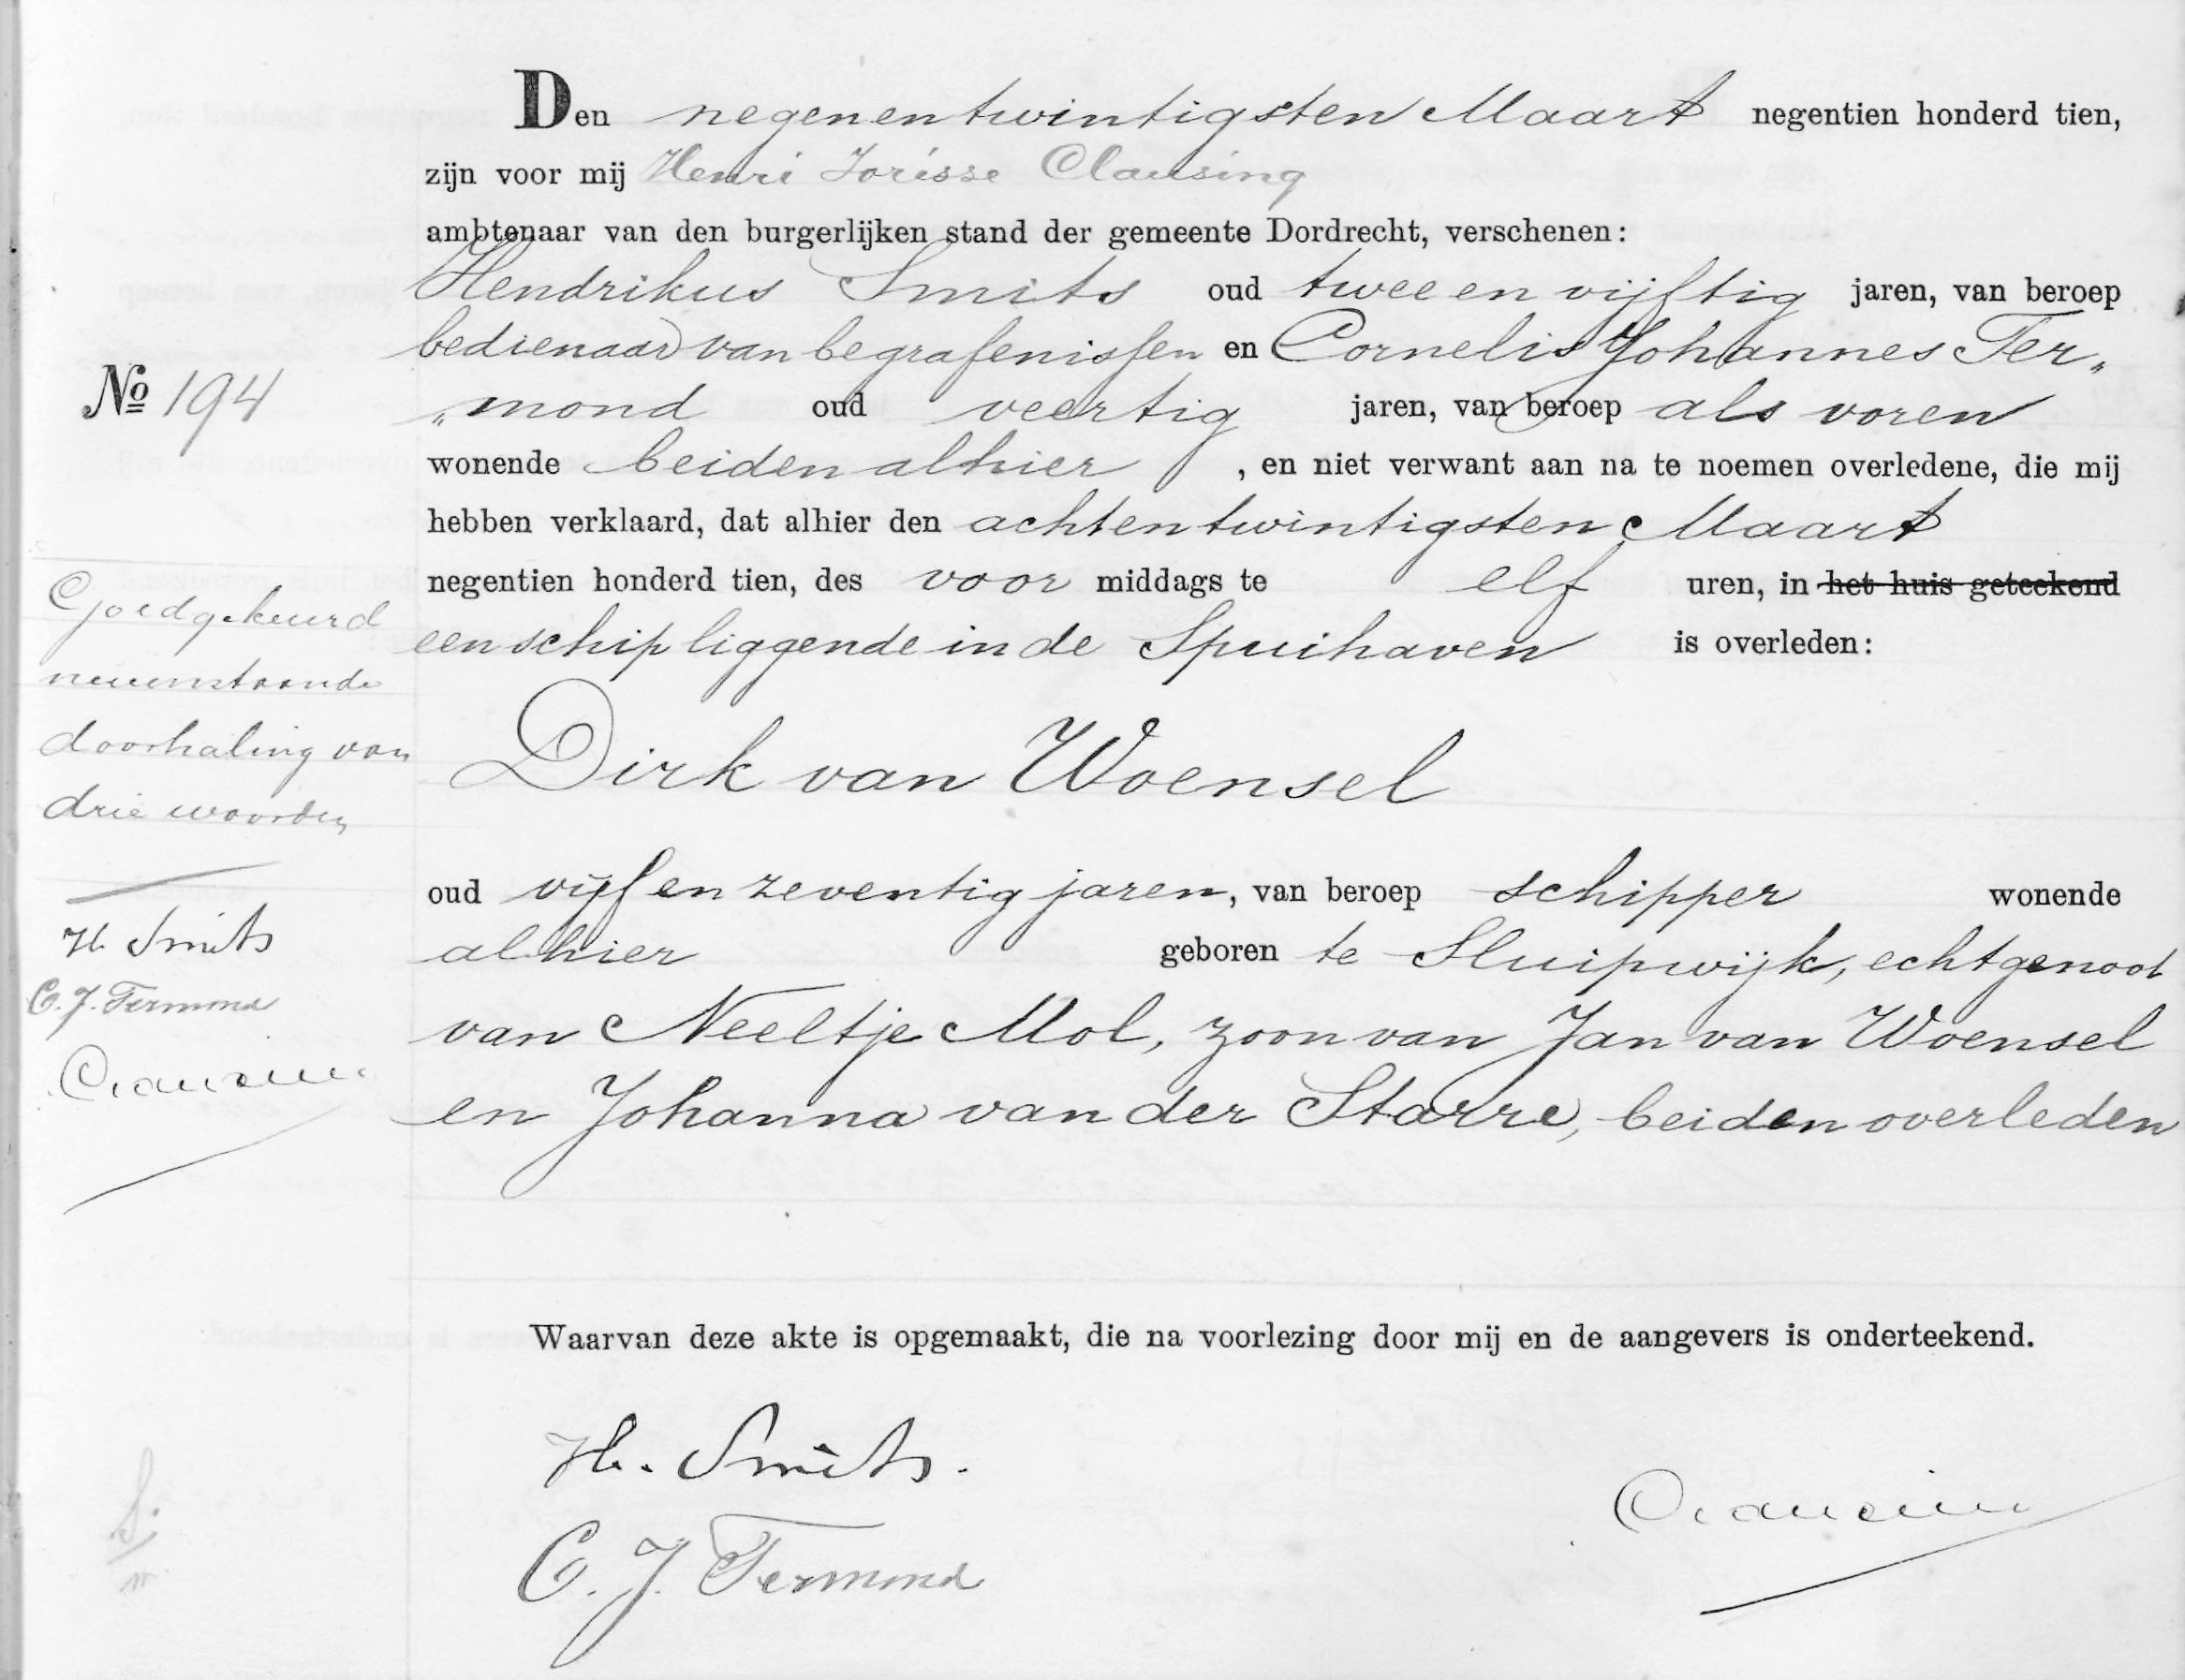 Den negenentwintigsten Maart negentien honderd tien,
zijn voor mij Henri Jorisse Clausing
ambtenaar van den burgerlijken stand der gemeente Dordrecht, verschenen:
Hendrikus Smits oud twee en vijftig jaren, van beroep
bedienaar van begrafenissen en Cornelis Johannes Ter„
„mond oud veertig jaren, van beroep als voren
wonende beiden alhier, en niet verwant aan na te noemen overledene, die mij
hebben verklaard, dat alhier den achtentwintigsten Maart
negentien honderd tien, des voor middags te elf uren, in het huis geteekend
een schip liggende in de Spuihaven is overleden:
Dirk van Woensel
oud vijf en zeventig jaren, van beroep schipper wonende
alhier geboren te Sluipwijk, echtgenoot
van Neeltje Mol, zoon van Jan van Woensel
en Johanna van der Starre, beiden overleden
Waarvan deze akte is opgemaakt, die na voorlezing door mij en de aangevers is onderteekend.
H. Smits.
C. J. Termond
Clausing
No 194
Goedgekeurd
nevenstaande
doorhaling van
drie woorden
H. Smits
C. J. Termond
Clausing